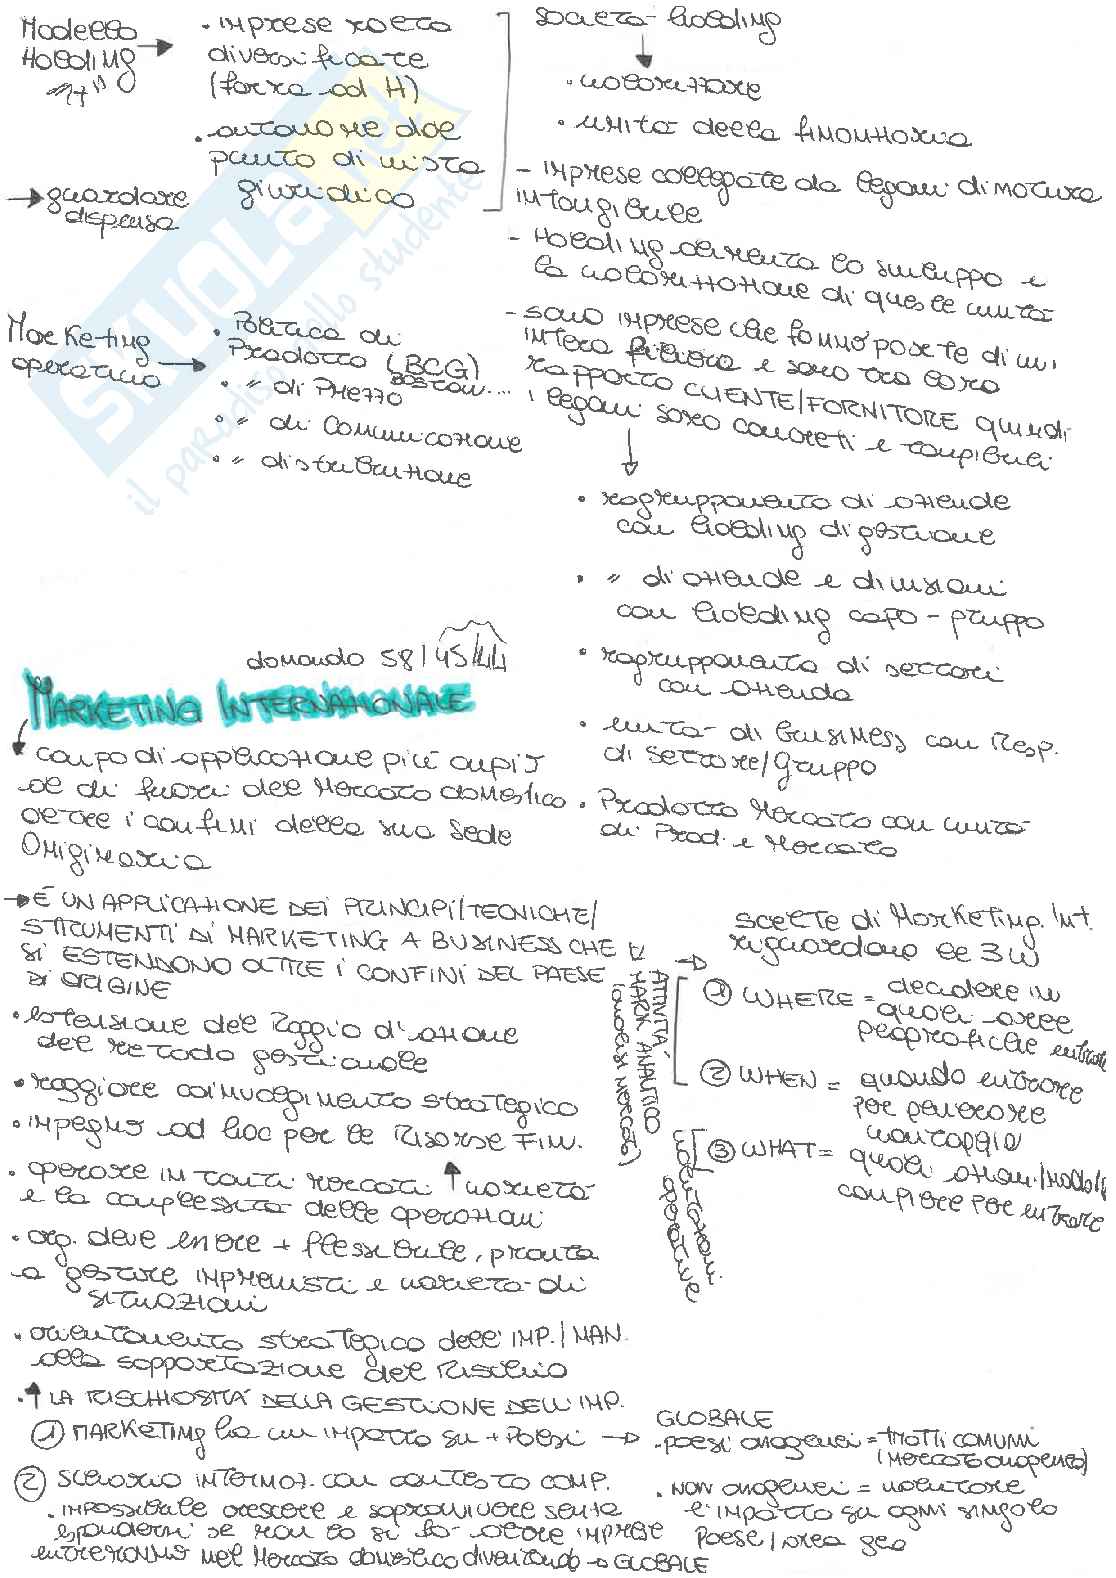 Modello
Holding
"H"
→ guardare
dispensa
• IMPRESE molto
diversificate
(forma ad H)
• autonome dal
punto di vista
giuridico
SOCIETÀ holding
• valorizzare
• unità della finanziaria
- IMPRESE collegate da legami di natura
intangibile
- Holding aumenta lo sviluppo e
la valorizzazione di queste unità
- sono imprese che fanno parte di un'
intera filiera e sono tra loro
rapporto CLIENTE/FORNITORE quindi
i legami sono concreti e tangibili
• raggruppamento di aziende
con holding di gestione
• " di aziende e divisioni
con holding capo-gruppo
• raggruppamento di settori
con azienda
• unità di business con Resp.
di settore/Gruppo
• Prodotto Mercato con unità
di Prod. e Mercato
Marketing
operativo →
• Politica di
Prodotto (BCG)
BOSTON...
• " di Prezzo
• " di Comunicazione
• " distribuzione
domanda 58/45/44
MARKETING INTERNAZIONALE
campo di applicazione più ampio
al di fuori del Mercato domestico
oltre i confini della sua Sede
Originaria
→ È UN APPLICAZIONE DEI PRINCIPI/TECNICHE/
STRUMENTI DI MARKETING A BUSINESS CHE
SI ESTENDONO OLTRE I CONFINI DEL PAESE
DI ORIGINE
• estensione del Raggio d'azione
del metodo gestionale
• maggiore coinvolgimento strategico
• IMPEGNO ad hoc per le Risorse FIN.
• operare in tanti mercati ↑ varietà
e la complessità delle operazioni
• org. deve essere + flessibile, pronta
a gestire imprevisti e varietà di
situazioni
• orientamento strategico dell'IMP./MAN.
alla sopportazione del Rischio
• ↑ LA RISCHIOSITÀ DELLA GESTIONE DELL'IMP.
① MARKETING ha un impatto su + Paesi →
② Scenario internaz. con contesto COMP.
• impossibile crescere e sopravvivere senza
espandersi se non lo si fa altre imprese
entreranno nel Mercato domestico diventando → GLOBALE
ATTIVITÀ
MARK ANALITICO
(analisi mercato)
valutazioni
operative
→ scelte di Marketing Int.
riguardano le 3W
① WHERE = decidere in
quali aree
geografiche entrare
② WHEN = quando entrare
per generare
vantaggio
③ WHAT = quali azioni/
compiere per entrare
GLOBALE
• paesi omogenei = tratti comuni
(Mercato omogeneo)
• non omogenei = valutare
l'impatto su ogni singolo
Paese/area geo
SKUOLA.net
il paradiso dello studente